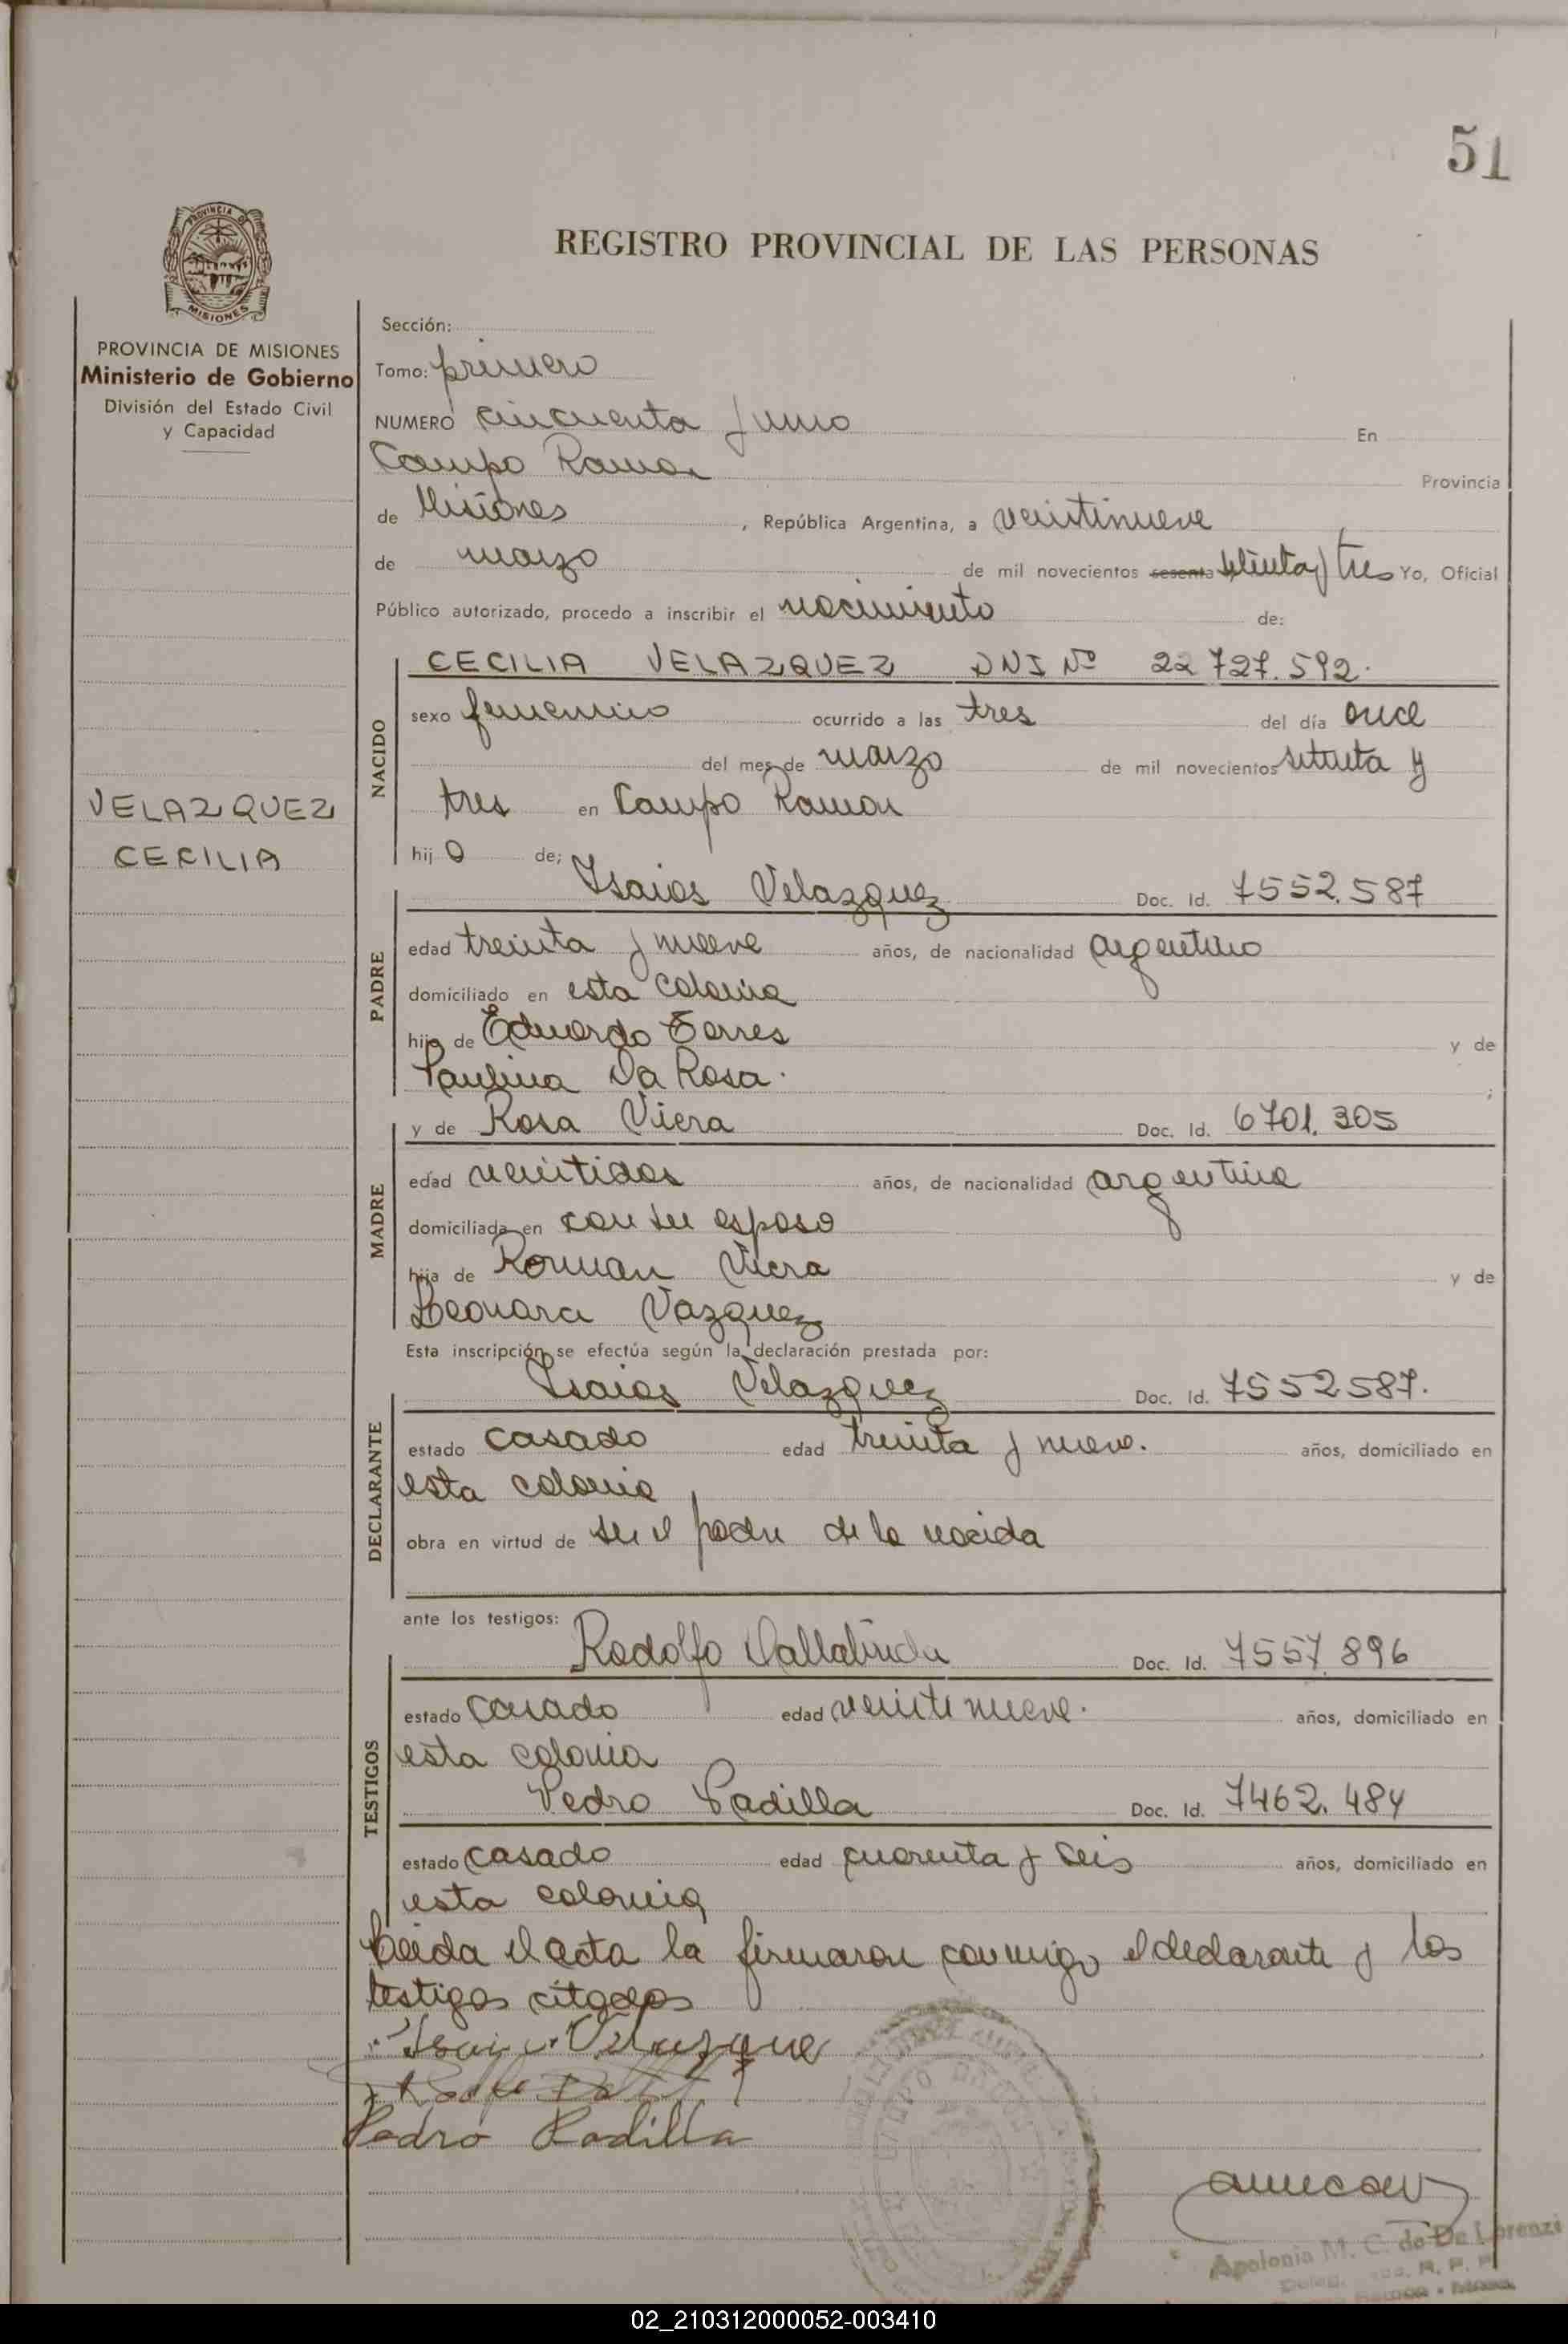 51
PROVINCIA DE
MISIONES
REGISTRO PROVINCIAL DE LAS PERSONAS
PROVINCIA DE MISIONES
Ministerio de Gobierno
División del Estado Civil
y Capacidad
VELAZQUEZ
CECILIA
Sección:
Tomo: primero
NUMERO cincuenta y uno En
Campo Ramon Provincia
de Misiones, República Argentina, a veintinueve
de marzo de mil novecientos sesenta setenta y tres Yo, Oficial
Público autorizado, procedo a inscribir el nacimiento de:
NACIDO
CECILIA VELAZQUEZ DNI Nº 22 727.592.
sexo femenino ocurrido a las tres del día once
del mes de marzo de mil novecientos setenta y
tres en Campo Ramon
hij a de;
PADRE
Isaias Velazquez Doc. Id. 7552.587
edad treinta y nueve años, de nacionalidad argentino
domiciliado en esta colonia
hijo de Eduardo Torres y de
Paulina Da Rosa.;
MADRE
y de Rosa Viera Doc. Id. 6701.305
edad veintidos años, de nacionalidad argentina
domiciliada en con su esposo
hija de Roman Viera y de
Leonora Vazquez
Esta inscripción se efectúa según la declaración prestada por:
DECLARANTE
Isaias Velazquez Doc. Id. 7552587.
estado casado edad treinta y nueve. años, domiciliado en
esta colonia
obra en virtud de ser el padre de la nacida
ante los testigos:
TESTIGOS
Rodolfo Doc. Id. 7557.896
estado casado edad veintinueve. años, domiciliado en
esta colonia
Pedro Padilla Doc. Id. 7462.484
estado casado edad cuarenta y seis años, domiciliado en
esta colonia
Leida el acta la firmaron conmigo el declarante y los
testigos citados
Velazque
Pedro Padilla
Apolonia M. C. de De Lorenzi
02_210312000052-003410